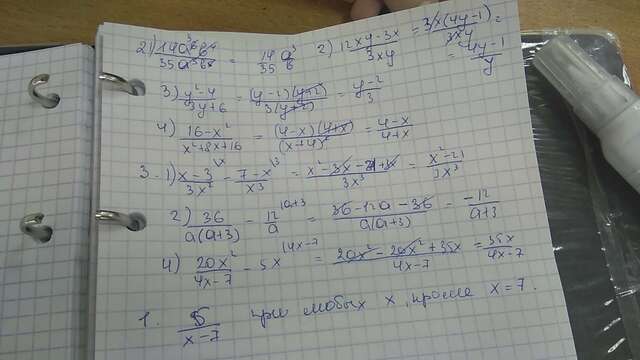 2) 1) 14a⁸b⁴ / 35a⁵b⁵ = 14a³ / 35b 2) 12xy-3x / 3xy = 3x(4y-1) / 3xy = 4y-1 / y
3) y²-4 / 3y+6 = (y-2)(y+2) / 3(y+2) = y-2 / 3
4) 16-x² / x²+8x+16 = (4-x)(4+x) / (x+4)² = 4-x / 4+x
3. 1) x-3 / 3x² - 7-x / x³ = x²-3x-21+3x / 3x³ = x²-21 / 3x³
2) 36 / a(a+3) - 12 / a = 36-12a-36 / a(a+3) = -12 / a+3
4) 20x² / 4x-7 - 5x = 20x²-20x²+35x / 4x-7 = 35x / 4x-7
1. 5 / x-7 при любых x, кроме x=7.